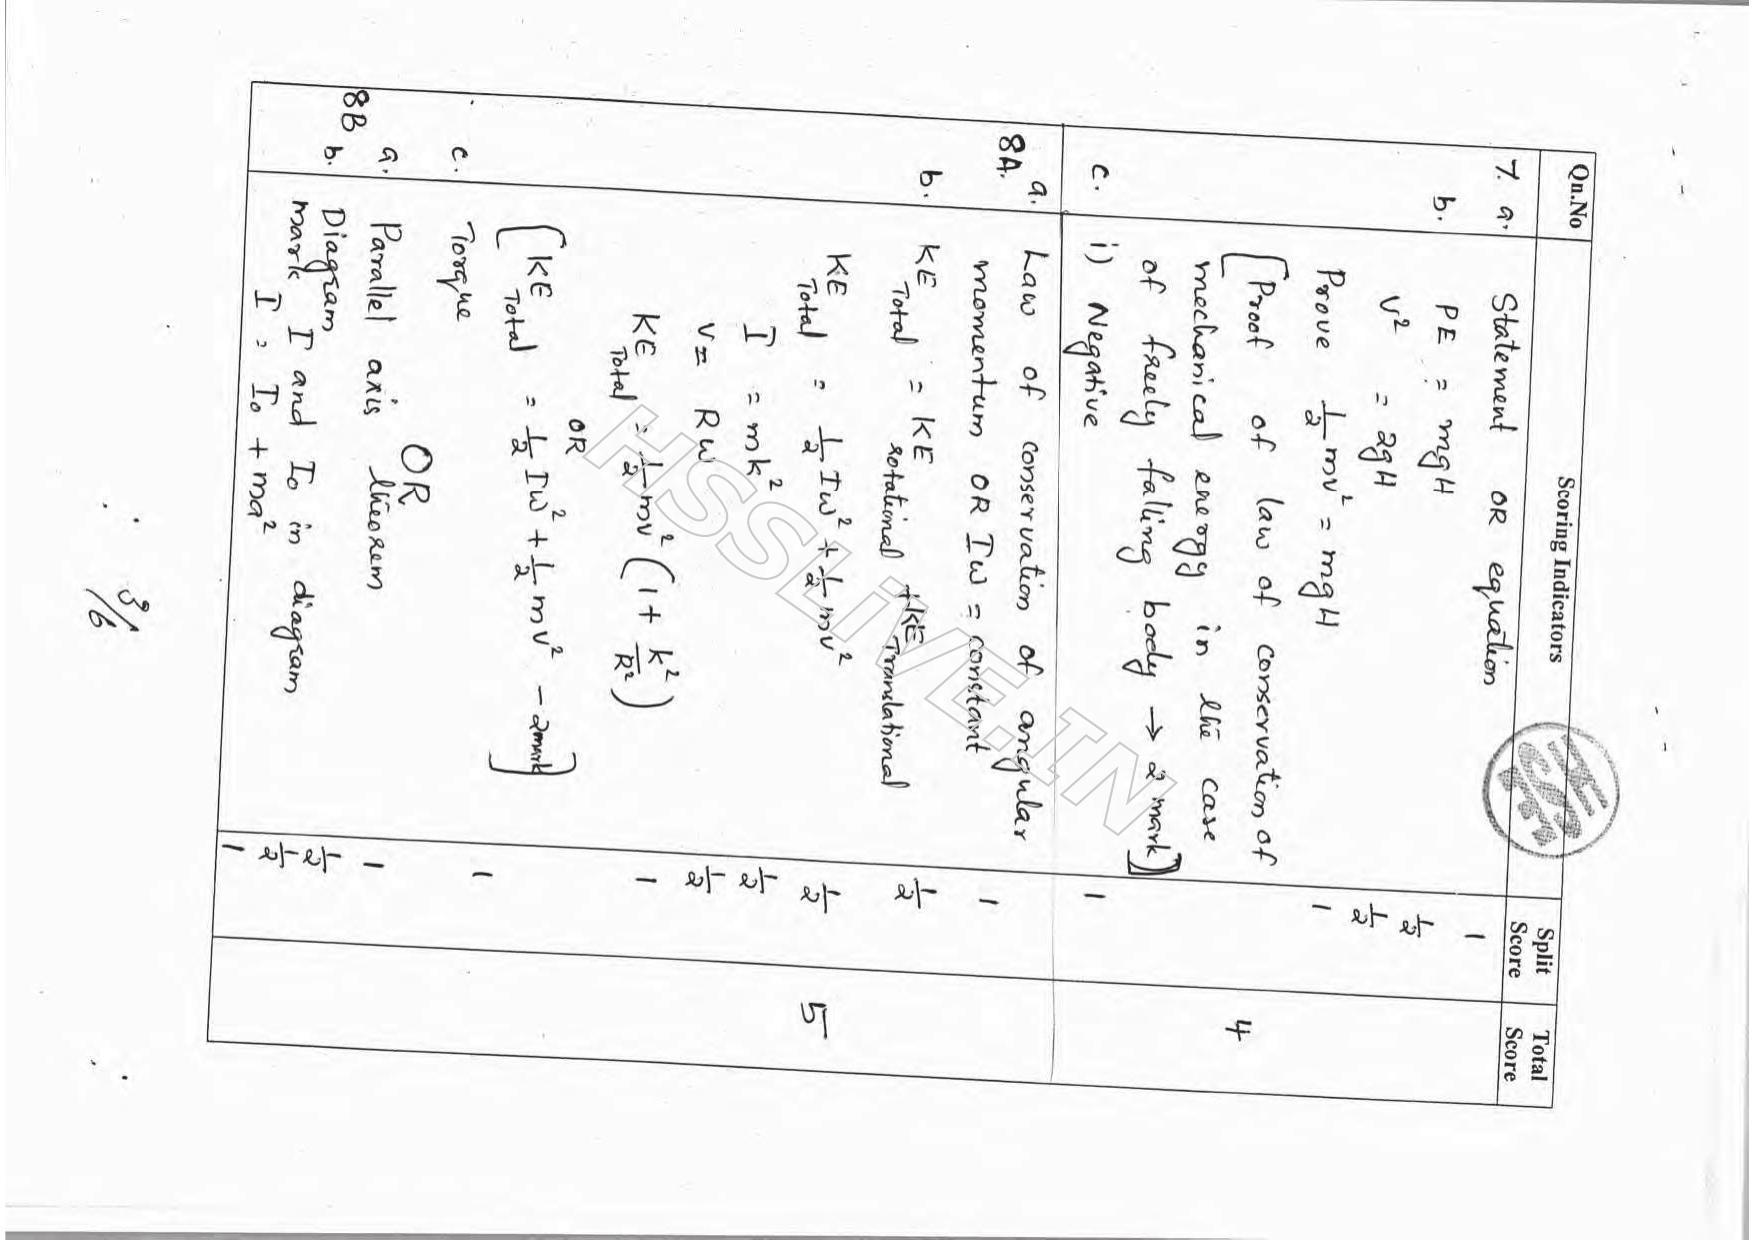 Qn.No Scoring Indicators Split Score Total Score
7. a. Statement OR equation 1
b. PE = mgH 1/2
v² = 2gH 1/2
Prove 1/2 mv² = mgH 1
[Proof of law of conservation of
mechanical energy in the case
of freely falling body → 2 mark] 4
c. i) Negative 1
8A. a. Law of conservation of angular
momentum OR Iω = constant 1
b. KE Total = KE rotational + KE Translational 1/2
KE Total = 1/2 Iω² + 1/2 mv² 1/2
5
I = mk² 1/2
v = Rω 1/2
KE Total = 1/2 mv² (1 + k²/R²) 1
OR
[KE Total = 1/2 Iω² + 1/2 mv² - 2mark]
c. Torque 1
OR
8B a. Parallel axis theorem 1
b. Diagram 1/2
mark I and I₀ in diagram 1/2
I = I₀ + ma² 1
3/6
HSSLiVE.IN